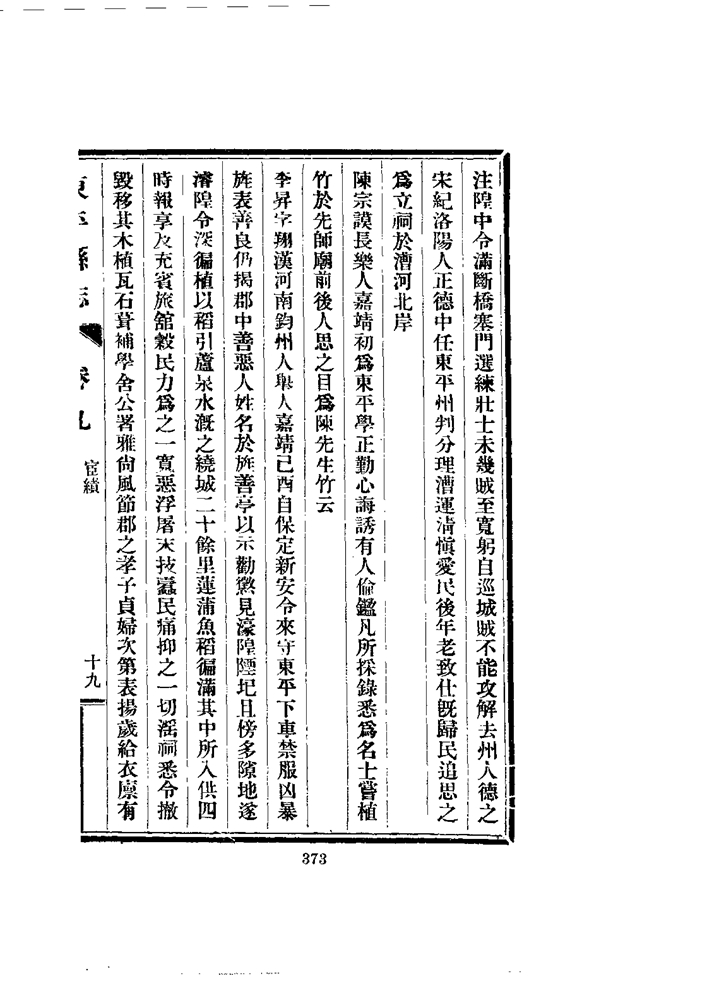 注隍中令滿斷橋塞門選練壯士未幾賊至寬躬自巡城賊不能攻解去州人德之
宋紀洛陽人正德中任東平州判分理漕運淸愼愛民後年老致仕旣歸民追思之
爲立祠於漕河北岸
陳宗謨長樂人嘉靖初爲東平學正勤心誨誘有人倫鑑凡所採錄悉爲名士嘗植
竹於先師廟前後人思之目爲陳先生竹云
李昇字翔漢河南鈞州人舉人嘉靖己酉自保定新安令來守東平下車禁服凶暴
旌表善良仍揭郡中善惡人姓名於旌善亭以示勸懲見濠隍陻圮且傍多隙地遂
濬隍令深徧植以稻引蘆泉水漑之繞城二十餘里蓮蒲魚稻徧滿其中所入供四
時報享及充賓旅舘穀民力爲之一寬惡浮屠末技蠹民痛抑之一切淫祠悉令撤
毀移其木植瓦石葺補學舍公署雅尙風節郡之孝子貞婦次第表揚歲給衣廩有
東平縣志 卷九 宦績 十九
373